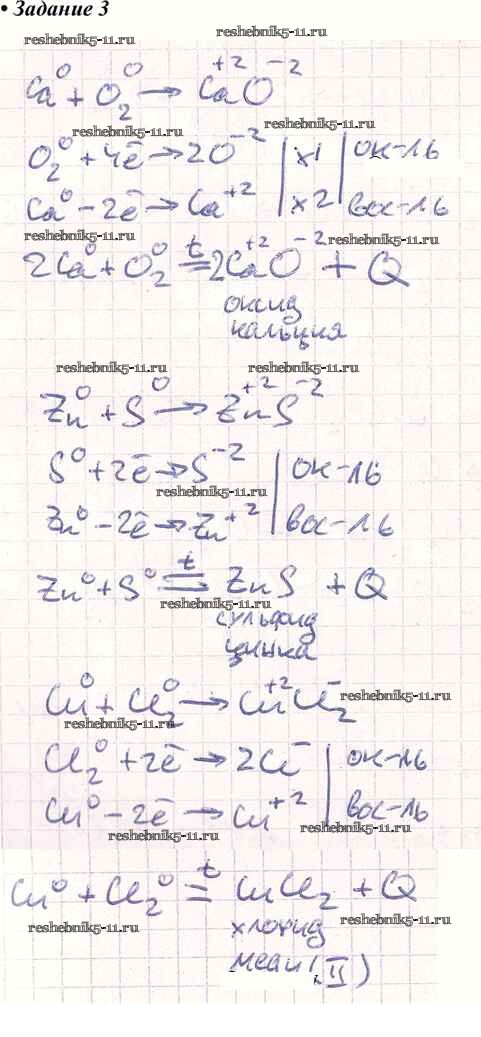 • Задание 3
reshebnik5-11.ru reshebnik5-11.ru
Ca⁰ + O₂⁰ → Ca⁺²O⁻²
reshebnik5-11.ru reshebnik5-11.ru
O₂⁰ + 4ē → 2O⁻² | x1 | ок-ль
Ca⁰ - 2ē → Ca⁺² | x2 | вос-ль
reshebnik5-11.ru reshebnik5-11.ru
2Ca⁰ + O₂⁰ =t 2Ca⁺²O⁻² + Q
оксид
кальция
reshebnik5-11.ru reshebnik5-11.ru
Zn⁰ + S⁰ → Zn⁺²S⁻²
S⁰ + 2ē → S⁻² | ок-ль
reshebnik5-11.ru
Zn⁰ - 2ē → Zn⁺² | вос-ль
Zn⁰ + S⁰ =t ZnS + Q
reshebnik5-11.ru
сульфид
цинка
Cu⁰ + Cl₂⁰ → Cu⁺²Cl₂⁻
reshebnik5-11.ru
reshebnik5-11.ru
Cl₂⁰ + 2ē → 2Cl⁻ | ок-ль
Cu⁰ - 2ē → Cu⁺² | вос-ль
reshebnik5-11.ru reshebnik5-11.ru
Cu⁰ + Cl₂⁰ =t CuCl₂ + Q
reshebnik5-11.ru reshebnik5-11.ru
хлорид
меди (II)